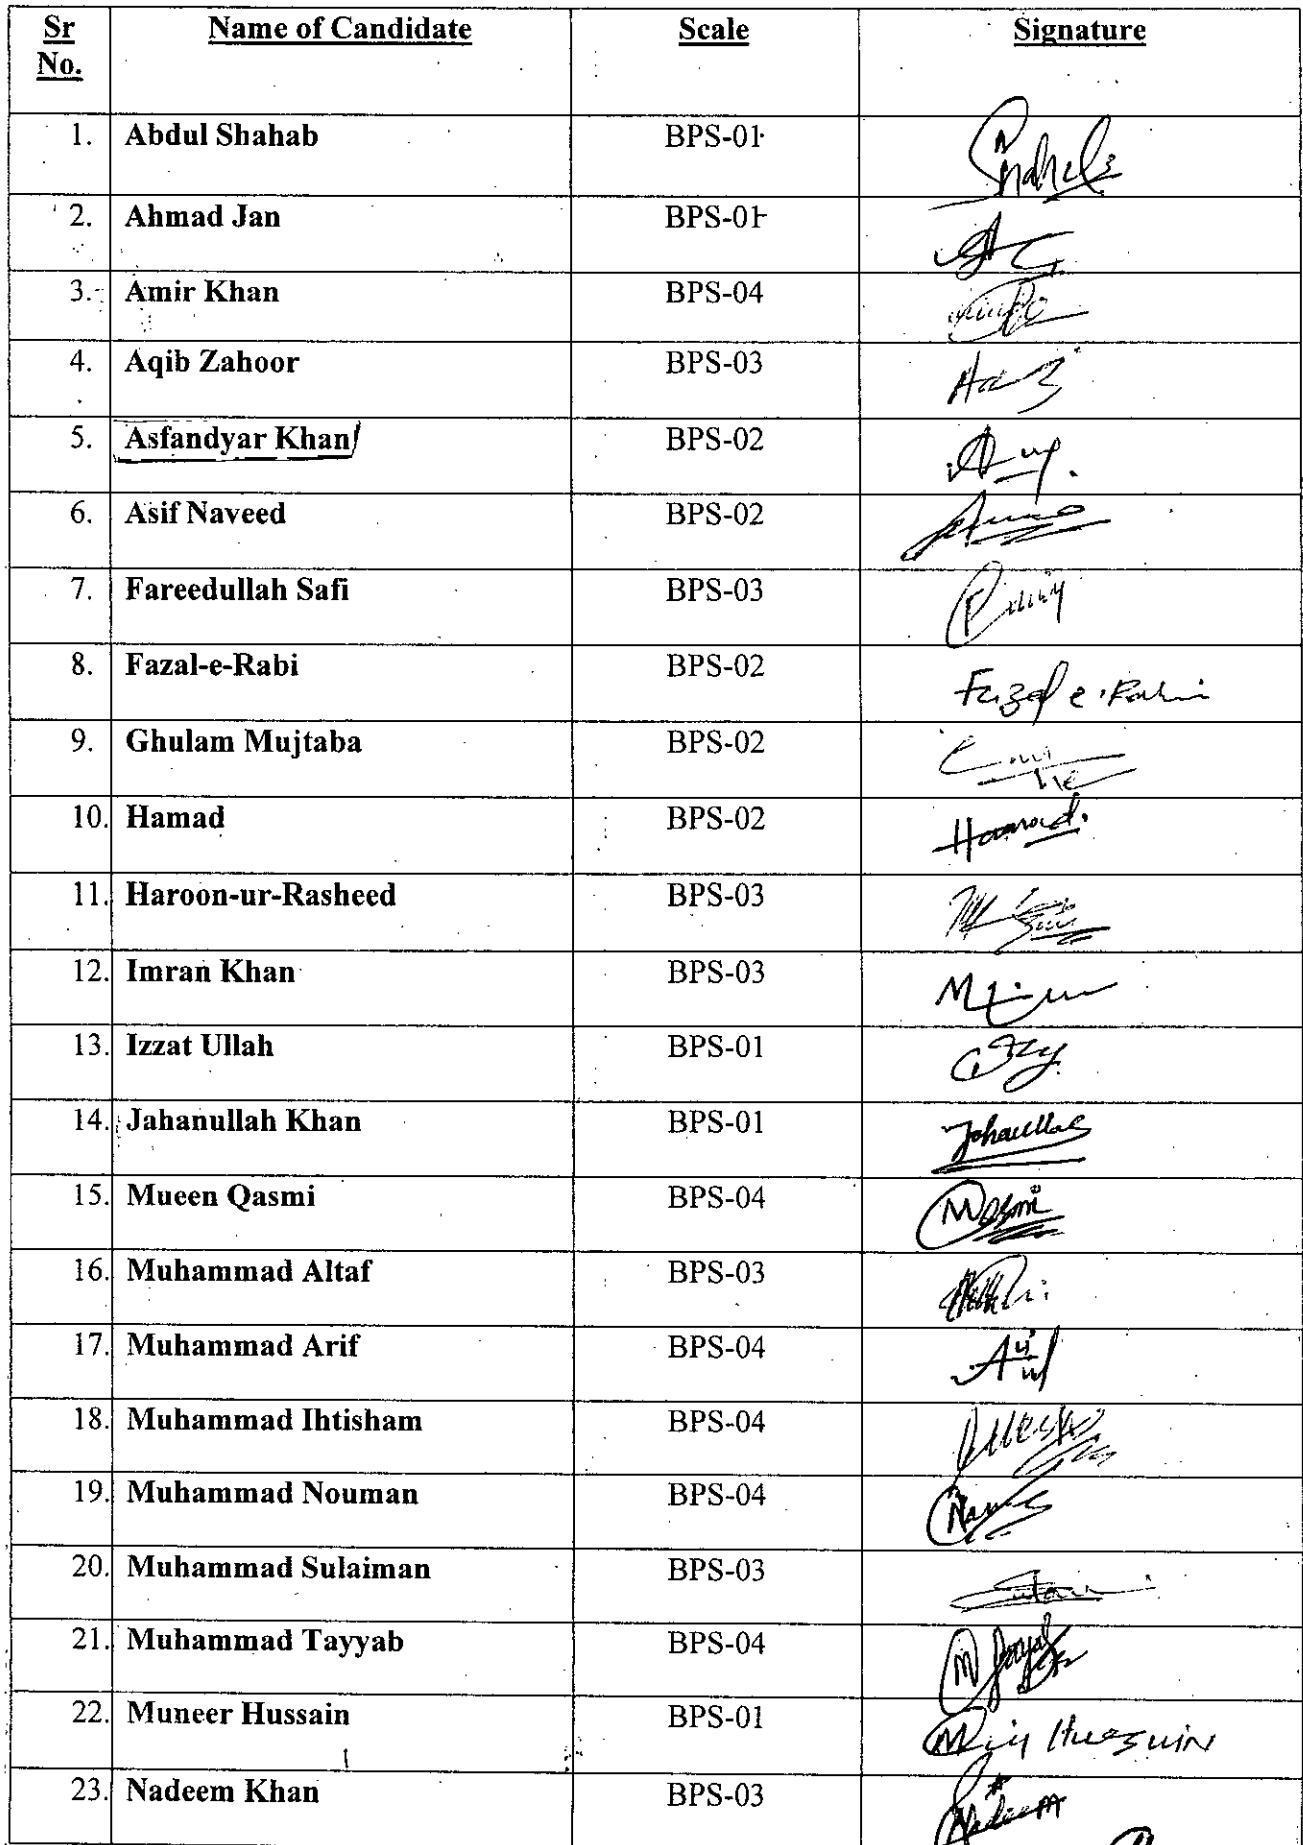 Sr No. Name of Candidate Scale Signature
1. Abdul Shahab BPS-01
2. Ahmad Jan BPS-01
3. Amir Khan BPS-04
4. Aqib Zahoor BPS-03
5. Asfandyar Khan BPS-02
6. Asif Naveed BPS-02
7. Fareedullah Safi BPS-03
8. Fazal-e-Rabi BPS-02 Fazal e Rabi
9. Ghulam Mujtaba BPS-02
10. Hamad BPS-02 Hamad.
11. Haroon-ur-Rasheed BPS-03
12. Imran Khan BPS-03
13. Izzat Ullah BPS-01
14. Jahanullah Khan BPS-01
15. Mueen Qasmi BPS-04
16. Muhammad Altaf BPS-03
17. Muhammad Arif BPS-04
18. Muhammad Ihtisham BPS-04
19. Muhammad Nouman BPS-04
20. Muhammad Sulaiman BPS-03
21. Muhammad Tayyab BPS-04
22. Muneer Hussain BPS-01
23. Nadeem Khan BPS-03 Nadeem